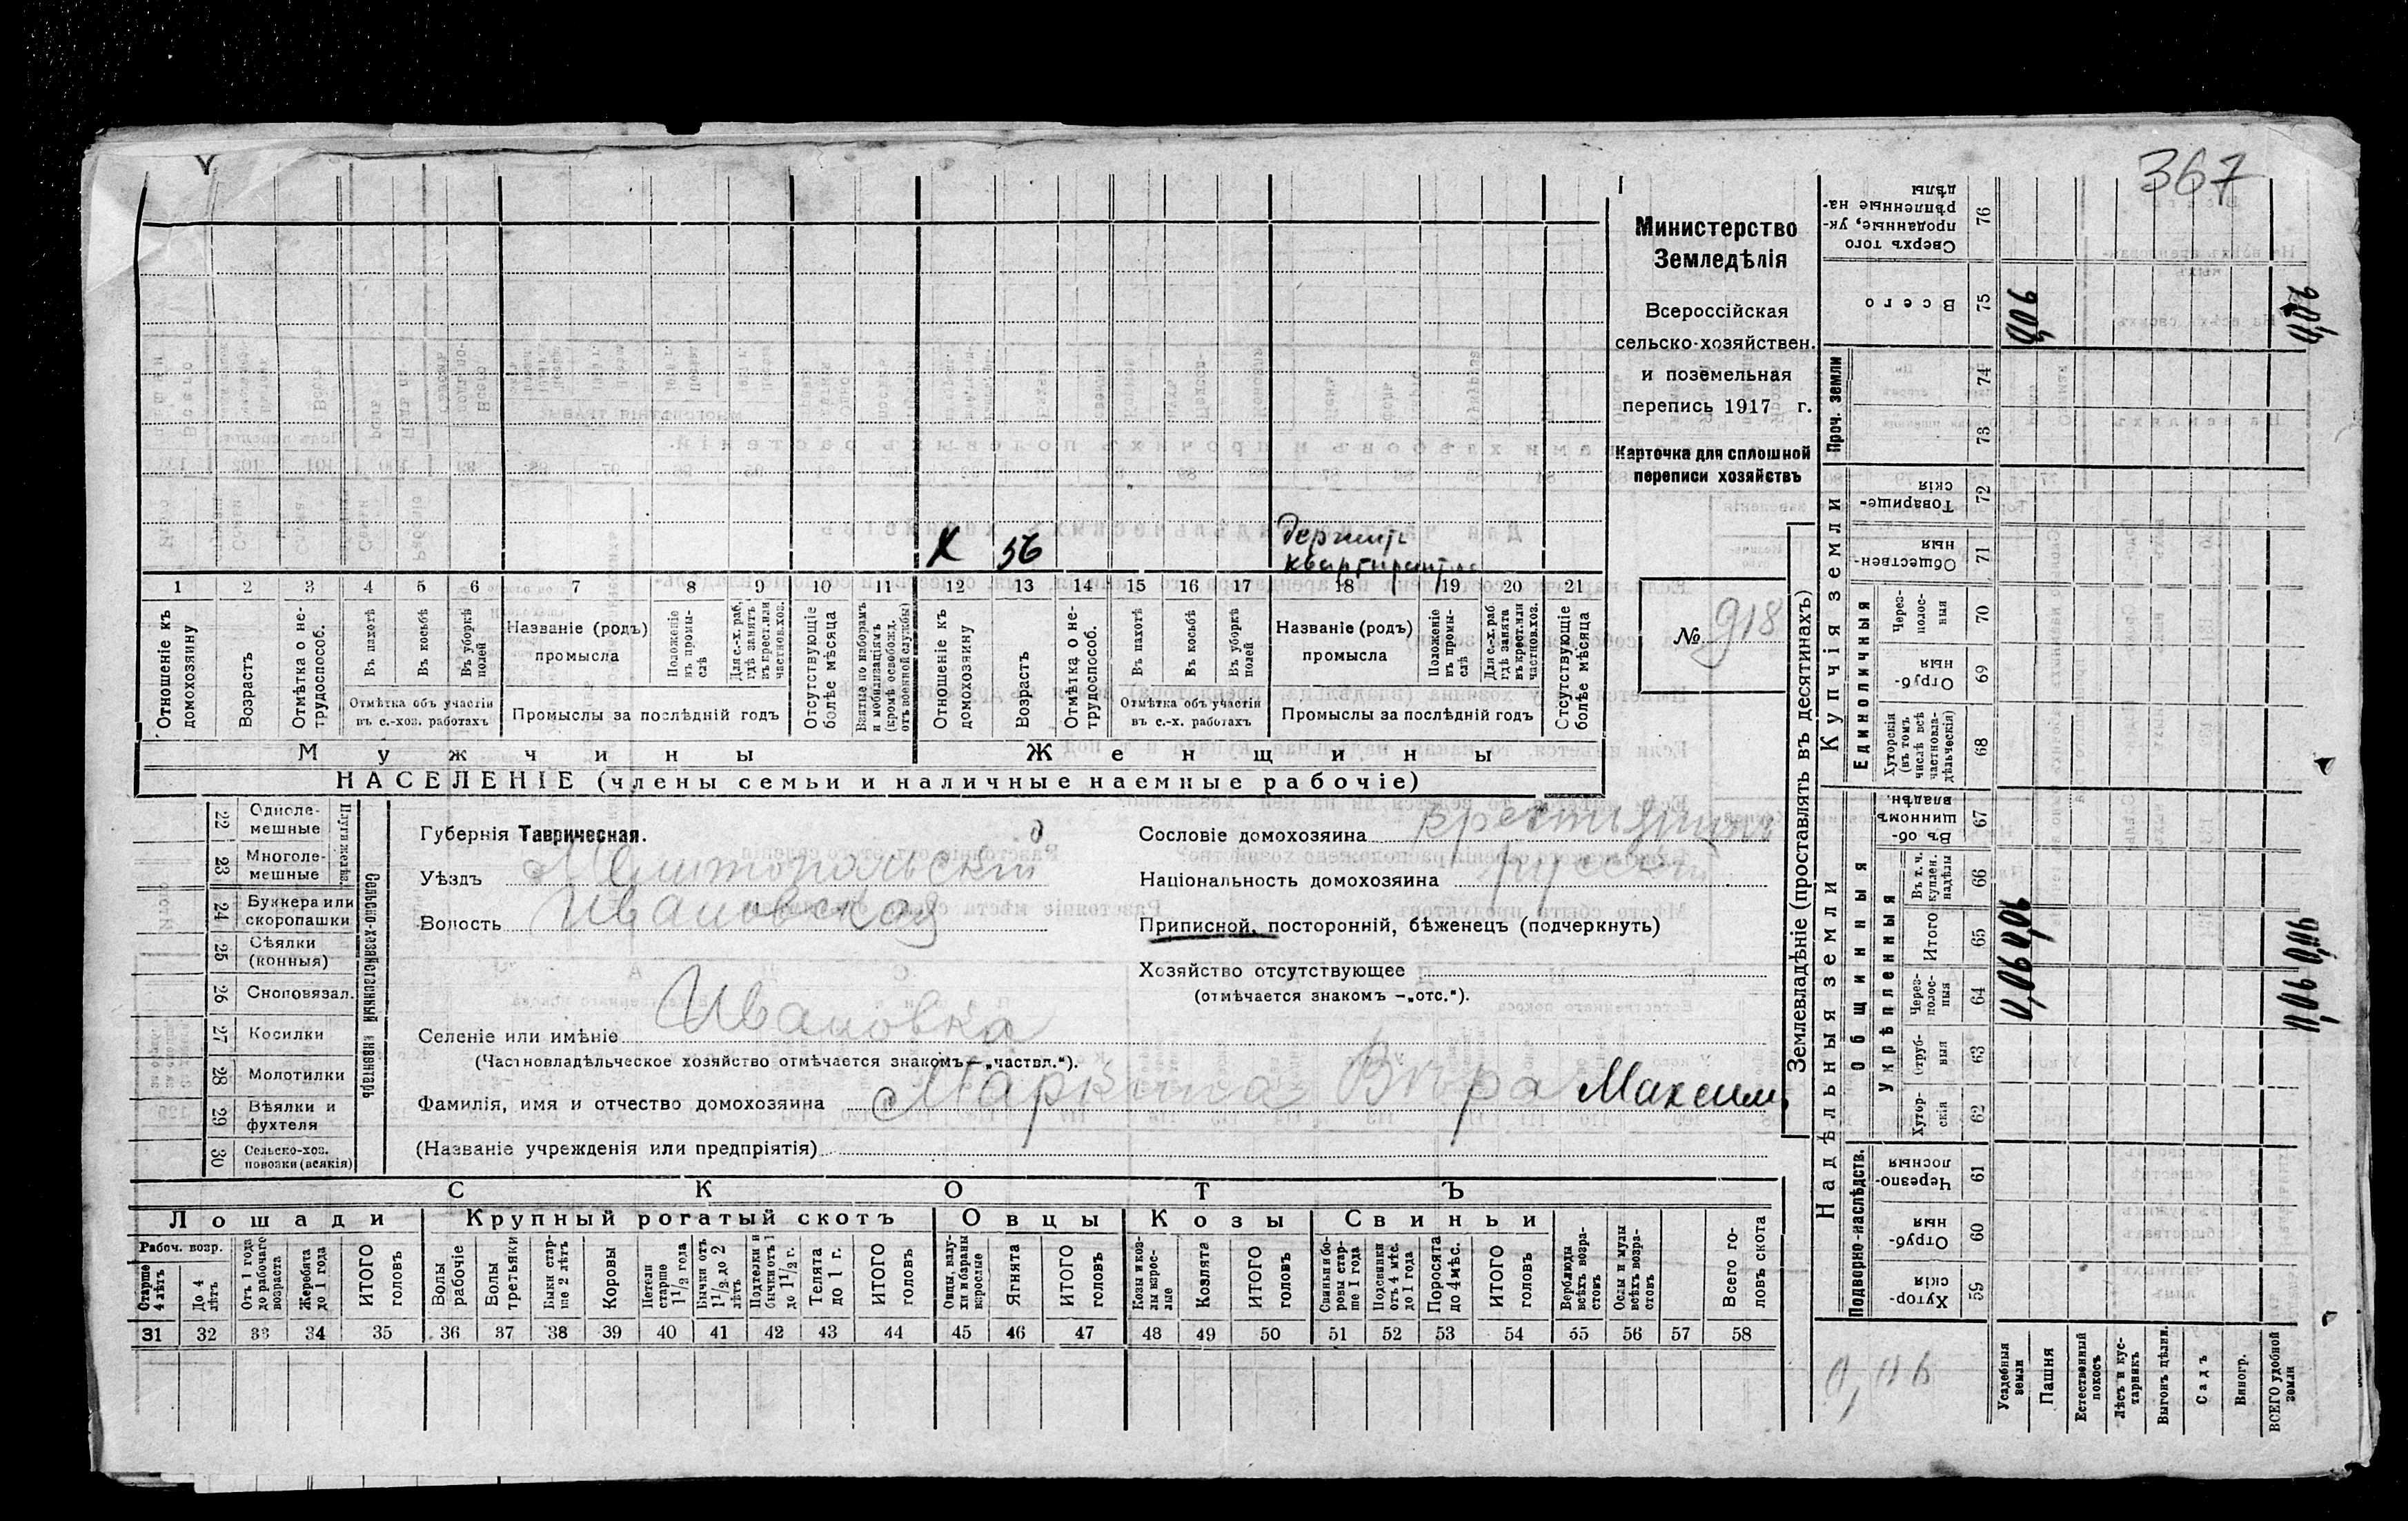 367
Министерство
Земледѣлія
Всероссійская
сельско-хозяйствен.
и поземельная
перепись 1917 г.
Карточка для сплошной
переписи хозяйствъ
№ 918
Х 56 держитъ
квартирантовъ
1 2 3 4 5 6 7 8 9 10 11 12 13 14 15 16 17 18 19 20 21
Отношеніе къ домохозяину
Возрастъ
Отмѣтка о не-трудоспособ.
Въ пахотѣ
Въ косьбѣ
Въ уборкѣ полей
Отмѣтка объ участіи
въ с.-хоз. работахъ
Названіе (родъ)
промысла
Положеніе въ промы-слѣ
Для с.-х. раб. гдѣ занятъ въ крест. или частнов. хоз.
Промыслы за послѣдній годъ
Отсутствующіе болѣе мѣсяца
Взятые по наборамъ и мобилизаціямъ (кромѣ освобожд. отъ военной службы)
Отношеніе къ домохозяину
Возрастъ
Отмѣтка о не-трудоспособ.
Въ пахотѣ
Въ косьбѣ
Въ уборкѣ полей
Отмѣтка объ участіи
въ с.-х. работахъ
Названіе (родъ)
промысла
Положеніе въ промы-слѣ
Для с.-х. раб. гдѣ занята въ крест. или частнов. хоз.
Промыслы за послѣдній годъ
Отсутствующіе болѣе мѣсяца
Мужчины
Женщины
НАСЕЛЕНІЕ (члены семьи и наличные наемные рабочіе)
Сельско-хозяйственный инвентарь
Плуги желѣз.
22 Одноле-мешные
23 Многоле-мешные
24 Буккера или скоропашки
25 Сѣялки (конныя)
26 Сноповязал.
27 Косилки
28 Молотилки
29 Вѣялки и фухтеля
30 Сельско-хоз. повозки (всякія)
Губернія Таврическая.
Уѣздъ Мелитопольскій
Волость Ивановская
Селеніе или имѣніе Ивановка
(Частновладѣльческое хозяйство отмѣчается знакомъ—„частвл.“).
Фамилія, имя и отчество домохозяина Маркина Вѣра Максим.
(Названіе учрежденія или предпріятія)
Сословіе домохозяина крестьянинъ
Національность домохозяина русскій
Приписной, посторонній, бѣженецъ (подчеркнуть)
Хозяйство отсутствующее
(отмѣчается знакомъ —„отс.“).
СКОТЪ
Лошади
Крупный рогатый скотъ
Овцы
Козы
Свиньи
Рабоч. возр.
Старше 4 лѣтъ
До 4 лѣтъ
Отъ 1 года до рабочаго возраста
Жеребята до 1 года
ИТОГО головъ
Волы рабочіе
Волы третьяки
Быки стар-ше 2 лѣтъ
Коровы
Нетели старше 1 1/2 года
Бычки отъ 1 1/2 до 2 лѣтъ
Подтелки и бычки отъ 1 до 1 1/2 г.
Телята до 1 г.
ИТОГО головъ
Овцы, валу-хи и бараны взрослые
Ягнята
ИТОГО головъ
Козы и коз-лы взрос-лые
Козлята
ИТОГО головъ
Свиньи и бо-ровы стар-ше 1 года
Подсвинки отъ 4 мѣс. до 1 года
Поросята до 4 мѣс.
ИТОГО головъ
Верблюды всѣхъ возра-стовъ
Ослы и мулы всѣхъ возра-стовъ
Всего го-ловъ скота
31 32 33 34 35 36 37 38 39 40 41 42 43 44 45 46 47 48 49 50 51 52 53 54 55 56 57 58
Землевладѣніе (проставлять въ десятинахъ)
Надѣльныя земли
Купчія земли
Проч. земли
Подворно-наслѣдств.
Общинныя
Укрѣпленныя
Единоличныя
Сверхъ того проданные, ук-рѣпленные на-дѣлы 76
Всего 75
74
73
Товарище-скія 72
Обществен-ныя 71
Через-полос-ныя 70
Отруб-ныя 69
Хуторскія (въ томъ числѣ всѣ частновла-дѣльческія) 68
Въ об-щинномъ владѣн. 67
Въ т. ч. куплен. надѣлы 66
Итого 65
Через-полос-ныя 64
Отруб-ныя 63
Хутор-скія 62
Черезпо-лосныя 61
Отруб-ныя 60
Хутор-скія 59
Усадебныя земли
Пашня
Естественный покосъ
Лѣсъ и кус-тарникъ
Выгонъ цѣлин.
Садъ
Виногр.
ВСЕГО удобной земли
0,06
0,06
0,06 0,06
0,06 0,06